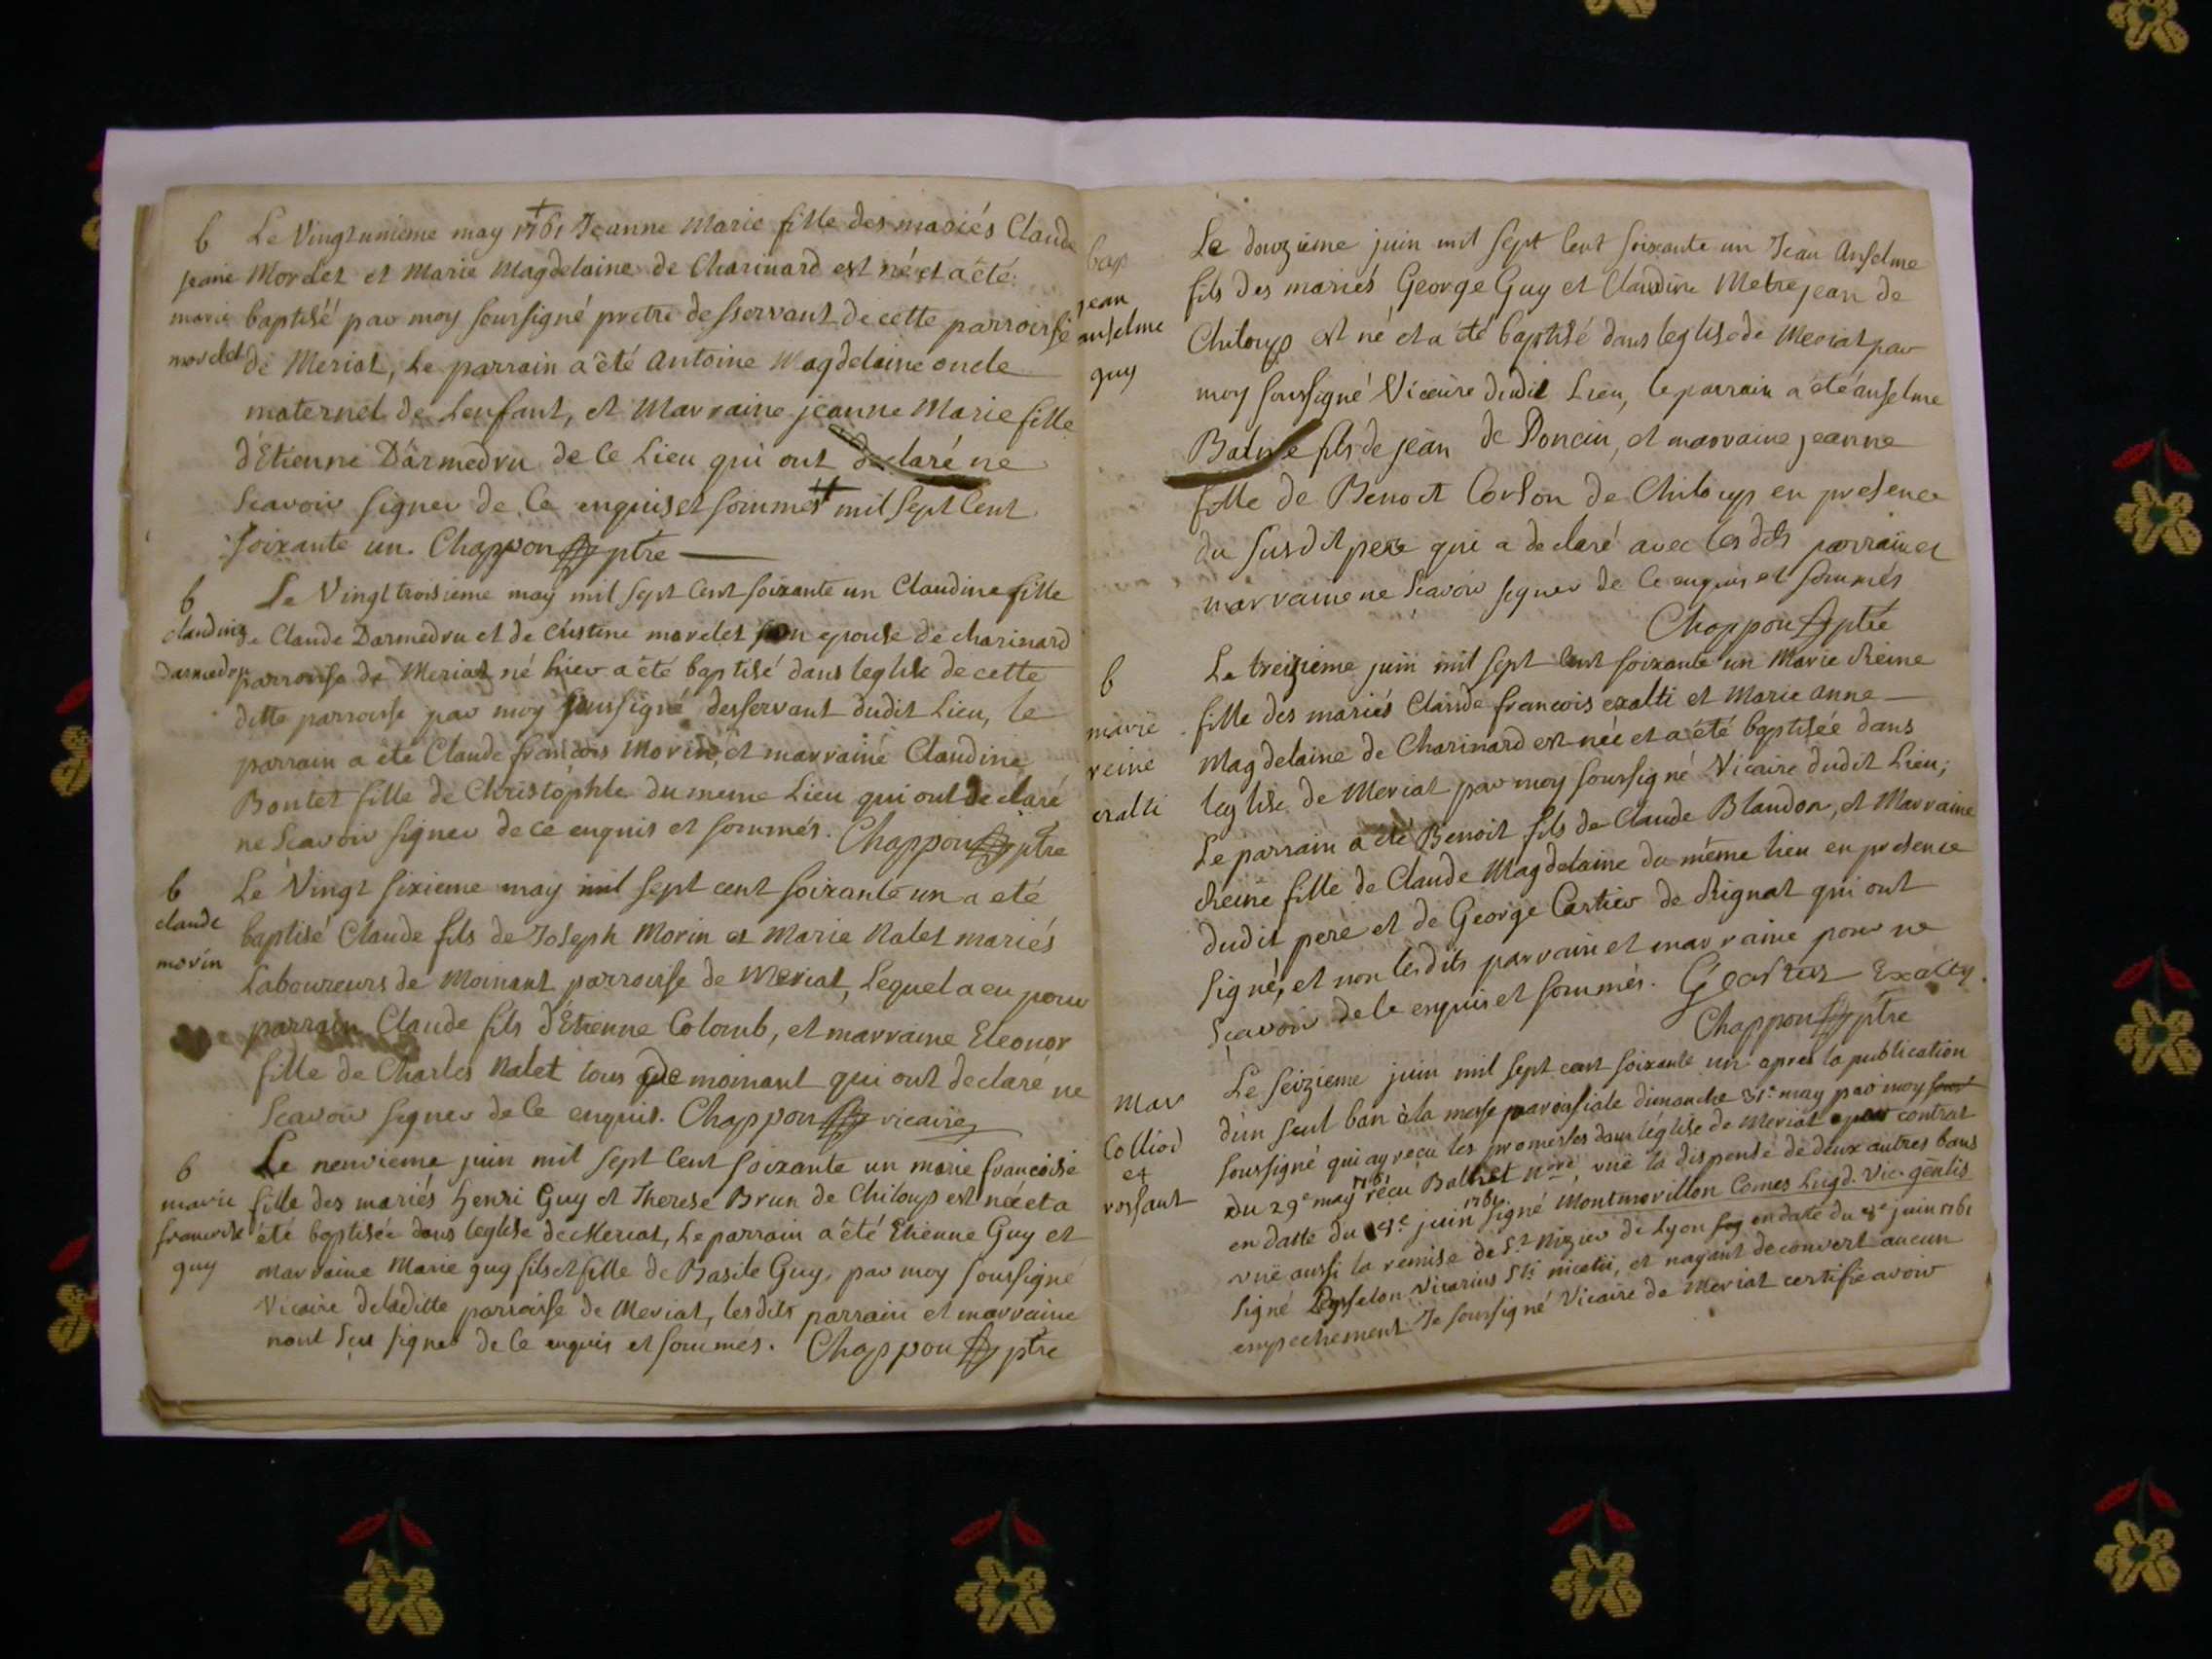 b Le Vingtunieme may 1761 Jeanne Marie fille des mariés Claude
jeane Mordet et Marie Magdelaine de Charinard est né et a été
marie baptisé par moy soussigné pretre desservant de cette parroisse
mordet de Meriat, Le parrain a été Antoine Magdelaine oncle
maternel de Lenfant, et Marraine jeanne Marie fille
d'Etienne Darmedru de ce Lieu qui ont declaré ne
scavoir signer de ce enquis et sommés mil sept cent
soixante un. Chappon ptre
b Le Vingt troisieme may mil sept cent soixante un Claudine fille
claudine de Claude Darmedru et de Cristine mordet son epouse de charinard
Darmedru parroisse de Meriat né hier a été baptisé dans leglise de cette
ditte parroisse par moy soussigné desservant dudit Lieu, le
parrain a été Claude francois Morin, et marraine Claudine
Bontet fille de Christophle du meme Lieu qui ont declaré
ne scavoir signer de ce enquis et sommés. Chappon ptre
b Le Vingt sixieme may mil sept cent soixante un a eté
claude baptisé Claude fils de Joseph Morin et Marie Nalet mariés
morin Laboureurs de Moinant parroisse de Meriat, Lequel a eu pour
parrain Claude fils d'Etienne Colomb, et marraine Eleonor
fille de Charles Nalet tous de moinant qui ont declaré ne
scavoir signer de ce enquis. Chappon vicaire
b Le neuvieme juin mil sept cent soixante un marie francoise
marie fille des mariés henri Guy et Therese Brun de Chiloup est née et a
francoise été baptisée dans leglise de Meriat, Le parrain a été Etienne Guy et
guy marraine Marie guy fils et fille de Basile Guy, par moy soussigné
Vicaire de laditte parroisse de Meriat, lesdits parrain et marraine
nont scu signer de ce enquis et sommés. Chappon ptre
bap Le douzieme juin mil sept cent soixante un Jean Anselme
jean fils des mariés George Guy et Claudine Metrejean de
anselme Chiloup est né et a été baptisé dans leglise de Meriat par
guy moy soussigné Vicaire dudit Lieu, le parrain a été anselme
Balme fils de jean de Poncin, et marraine jeanne
fille de Benoit Corson de Chiloup en presence
du susdit pere qui a declaré avec lesdits parrain et
marraine ne scavoir signer de ce enquis et sommés
Chappon ptre
b Le treizieme juin mil sept cent soixante un Marie Reine
marie fille des mariés Claude francois exalti et Marie Anne
reine Magdelaine de Charinard est née et a été baptisée dans
exalti leglise de Meriat par moy soussigné Vicaire dudit Lieu;
Le parrain a été Benoit fils de Claude Blandon, et Marraine
Reine fille de Claude Magdelaine du même lieu en presence
dudit pere et de George Cartier de Rignat qui ont
signé, et non lesdits parrain et marraine pour ne
scavoir de ce enquis et sommés. G Cartier Exalty.
Chappon ptre
mar Le seizieme juin mil sept cent soixante un apres la publication
Colliod d'un seul ban à la messe parroissiale dimanche 31e may par moy
et soussigné qui ay recu les promesses dans l'église de Meriat contrat
rossant du 29e may 1761 recu Balthet nore vuë la dispense de deux autres bans
en datte du 8e juin 1761 signé Montmorillon Comes Lugd. Vic. gentis
vuë aussi la remise de St Nizier de Lyon en date du 8e juin 1761
signé Peysselon Vicarius Sti nicetii, et nayant decouvert aucun
empechement Je soussigné Vicaire de Meriat certifie avoir